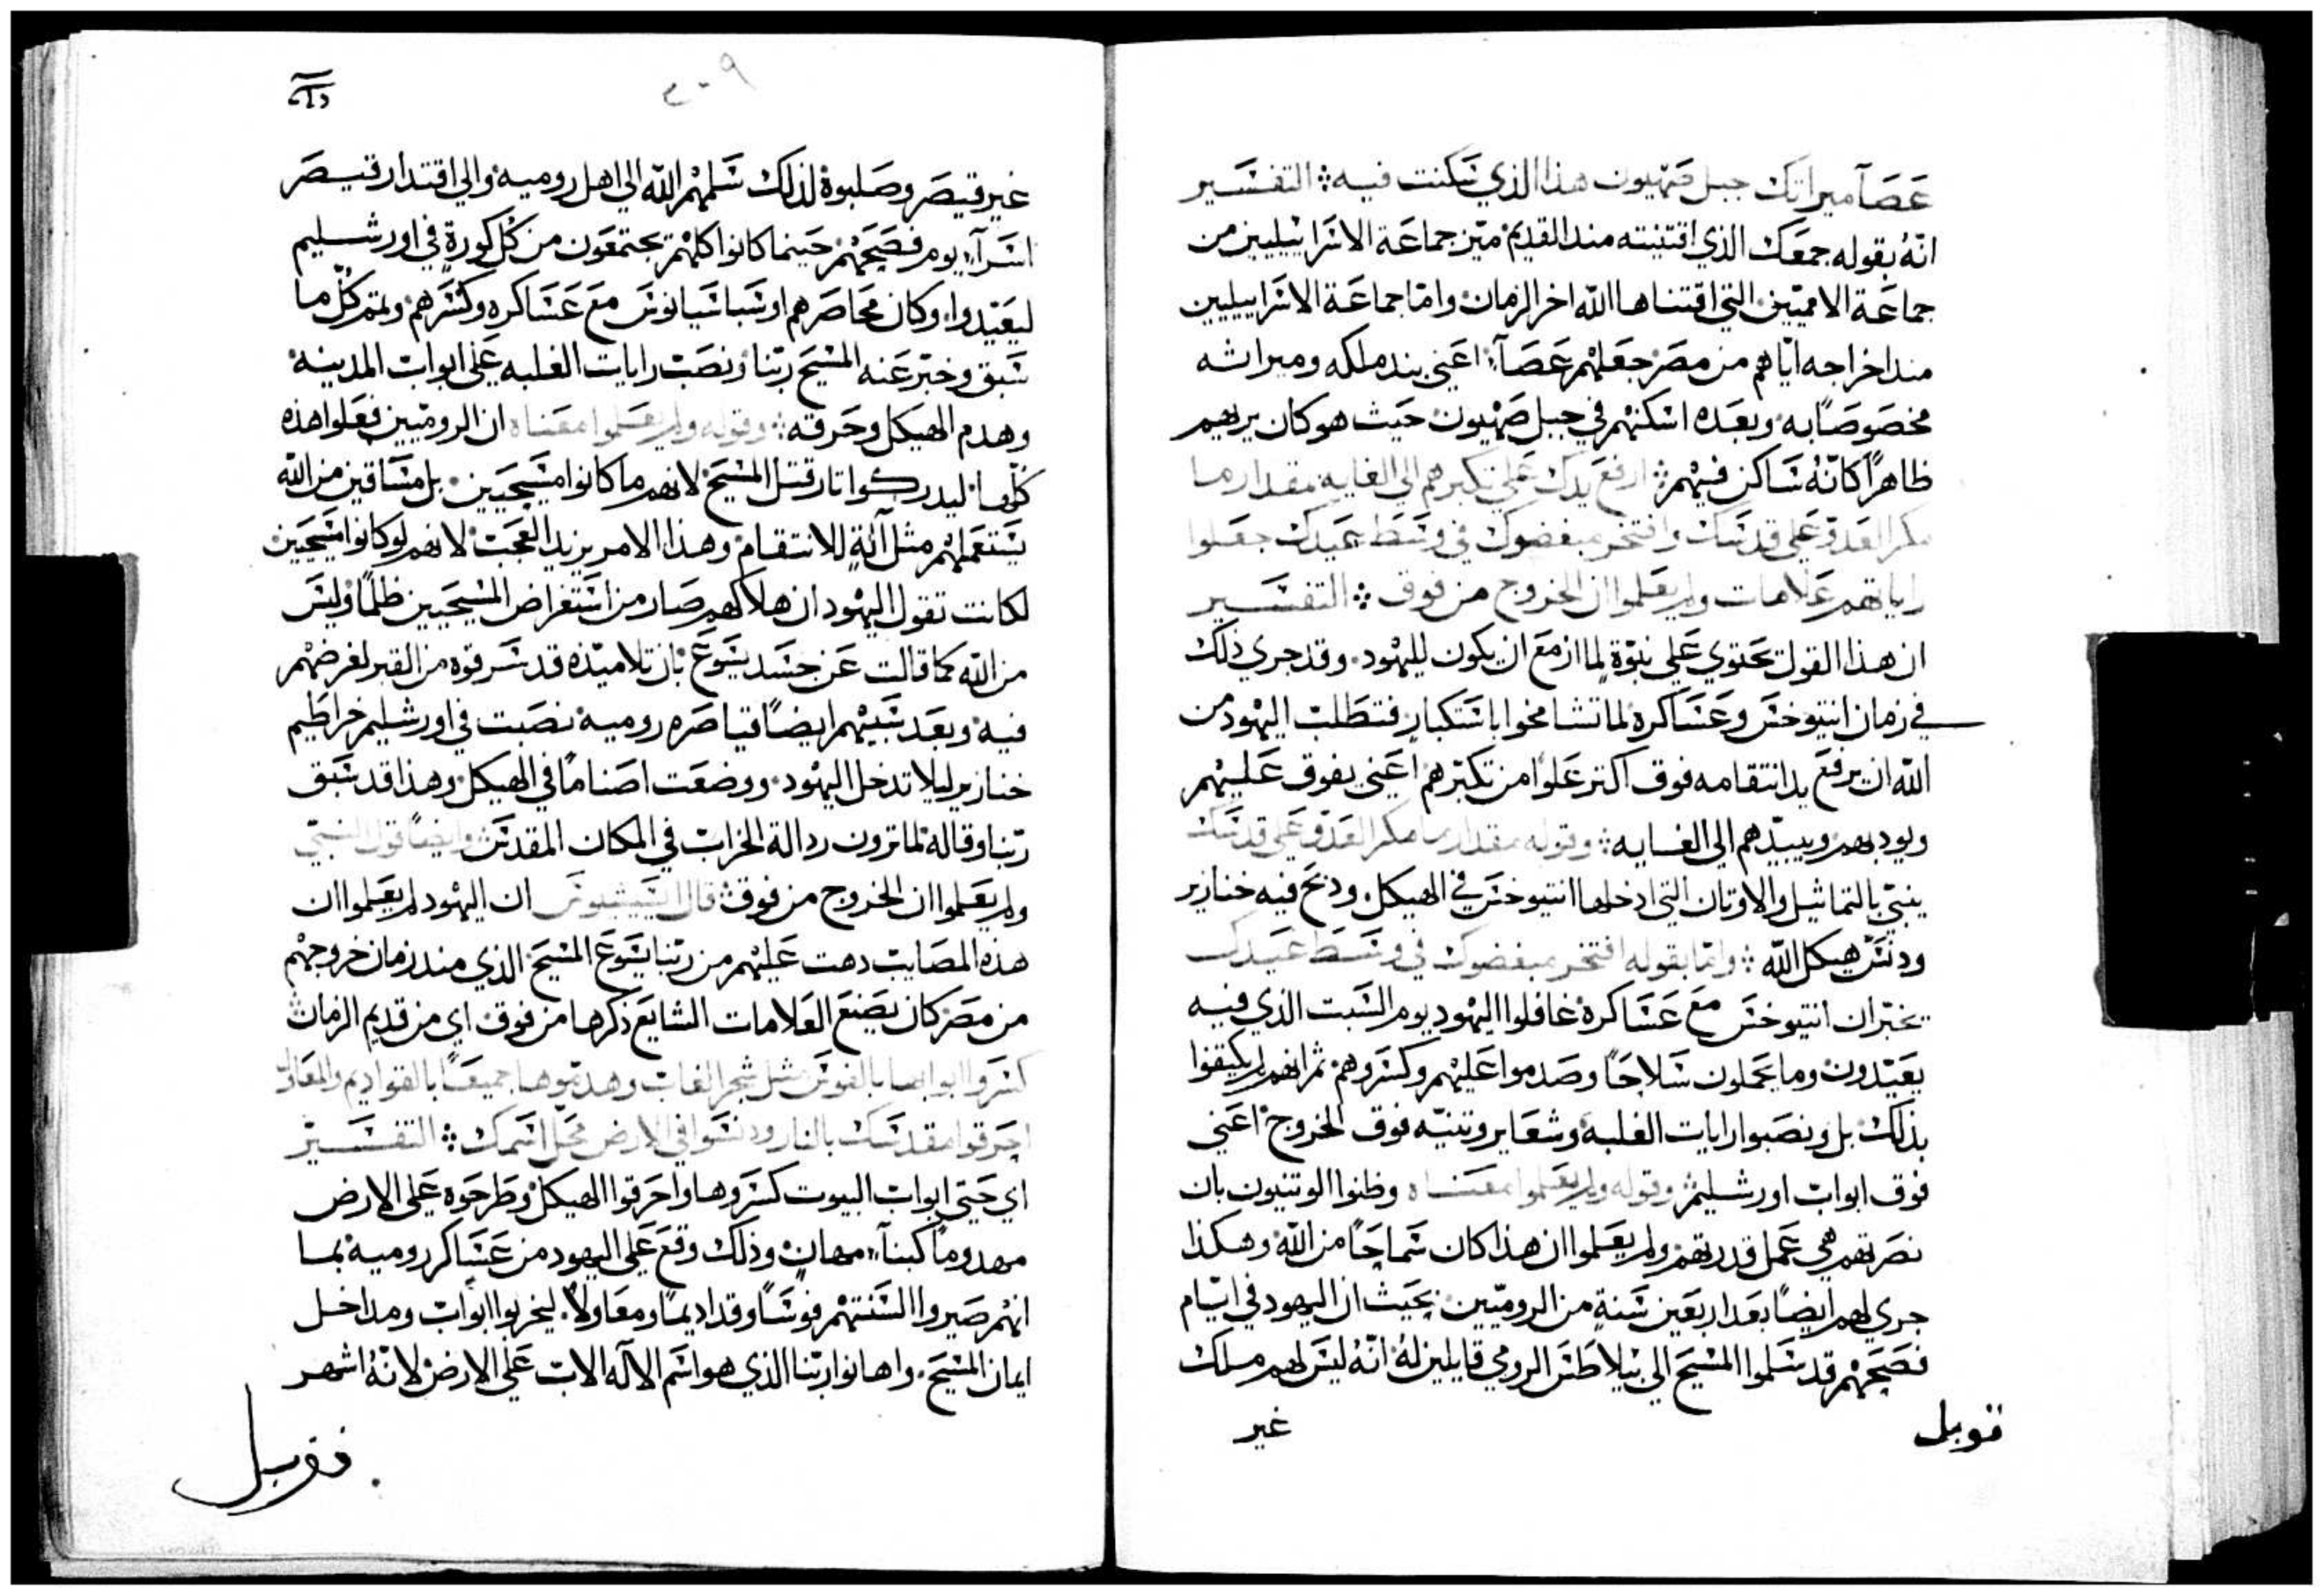 عصا ميراتك جبل صهيون هذا الذي سكنت فيه ⁘ التفسير
انّه بقوله جمعك الذي اقتنيته مند القديم ميّز جماعة الاسراييليين من
جماعة الامميّين التي اقتناها اللّه اخر الزمان وامّا جماعة الاسراييليين
مند اخراجه ايّاهم من مصر جعلهم عصاً اعني بند ملكه وميراثه
مخصوصًا به وبعده اسكنهم في جبل صهيون حيث هو كان يريهم
ظاهرًا كانّه ساكن فيهم ⁘ ارفع يدك علي تكبرهم الي الغايه بمقدار ما
مكر العدوّ علي قدسك وافتخر مبغضوك في وسط عيدك جعلوا
راياتهم علامات ولم يعلموا ان الخروج من فوق ⁘ التفسير
ان هذا القول يحتوي علي نبوّة لما ازمع ان يكون لليهود وقد جري ذلك
في زمان انتيوخس وعساكره لما تشامخوا باستكبار فتطلب اليهود من
اللّه ان يرفع يد انتقامه فوق اكتر علوا من تكبّرهم اعني يفوق عليهم
ويودبهم ويبيدهم الي الغايه ⁘ وقوله بمقدار ما مكر العدوّ علي قدسك
ينبّي بالتماثيل والاوتان التي ادخلها انتيوخس في الهيكل ودبح فيه خنازير
ودنس هيكل اللّه ⁘ وامّا بقوله افتخر مبغضوك في وسط عيدك
يخبّر ان انتيوخس مع عساكره غافلوا اليهود يوم السبت الذي فيه
يعيّدون وما يحملون سلاحًا وصدموا عليهم وكسروهم ثم انهم لم يكيّفوا
بذلك بل ونصبوا رايات الغلبه وشعاير وتنيّه فوق الخروج اعني
فوق ابواب اورشليم ⁘ وقوله ولم يعلموا معناه وظنوا الوتنيون بان
نصرتهم هي عمل قدرتهم ولم يعلموا ان هذا كان سماحًا من اللّه وهكذا
جري لهم ايضًا بعد اربعين سنة من الروميّين بحيث ان اليهود في ايّام
فصحهم قد سلموا المسيح الي بيلاطس الرومي قايلين له انّه ليس لهم ملك
غير
قوبل
٢٠٩
غير قيصر وصلبوه لذلك سلمهم اللّه الي اهل روميه والي اقتدار قيصر
اسرآء يوم فصحهم حينما كانوا كلهم يجتمعون من كل كورة في اورشليم
ليعيّدوا وكان محاصرهم اوسباسيانوس مع عساكره وكسرهم وتم كل ما
سبق وخبّر عنه المسيح ربّنا ونصب رايات الغلبه علي ابواب المدينه
وهدم الهيكل وحرقه ⁘ وقوله ولم يعلموا معناه ان الروميّين فعلوا هذه
كلّها ليدركوا تار قتل المسيح لانهم ما كانوا مسيحيين بل مساقين من اللّه
يستعملهم مثل آلةٍ للانتقام وهذا الامر يزيد العجب لانهم لو كانوا مسيحيين
لكانت تقول اليهود ان هلاكهم صار من استغراض المسيحيين ظلمًا وليس
من اللّه كما قالت عن جسد يسوع بان تلاميذه قد سرقوه من القبر لغرضهم
فيه وبعد سبيهم ايضًا قياصره روميه نصبت في اورشليم خراطيم
خنازير ليلا تدخل اليهود ووضعت اصنامًا في الهيكل وهذا قد سبق
ربّنا وقاله لما ترون ردالة الخراب في المكان المقدس ⁘ وايضًا قول النبيّ
ولم يعلموا ان الخروج من فوق ⁘ قال ان اليهود لم يعلموا ان
هذه المصايب دهت عليهم من ربّنا يسوع المسيح الذي مند زمان خروجهم
من مصر كان يصنع العلامات الشايع ذكرها من فوق اي من قديم الزمان
كسروا ابوابها بالفوس مثل شجر الغاب وهدموها جميعًا بالقواديم والمعاول
احرقوا مقدسك بالنار ودنسوا في الارض محل اسمك ⁘ التفسير
اي حتي ابواب البيوت كسروها واحرقوا الهيكل وطرحوه علي الارض
مهدومًا كبناءٍ مهان وذلك وقع علي اليهود من عساكر روميه بما
انهم صيروا السنتهم فوسًا وقداديمًا ومعاولاً ليخربوا ابواب ومداخل
ايمان المسيح واهانوا ربّنا الذي هو اسم الاله الاب علي الارض لانّه اشهر
قوبل